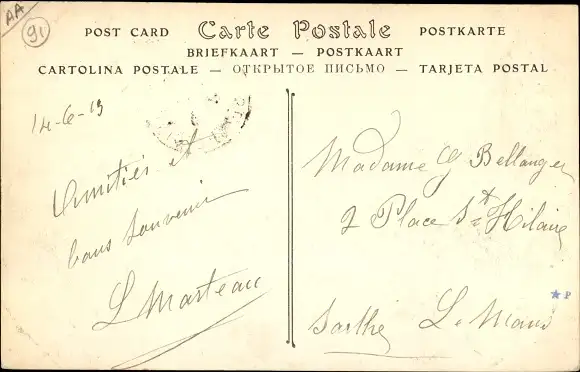 AA
91
POST CARD Carte Postale POSTKARTE
BRIEFKAART — POSTKAART
CARTOLINA POSTALE — ОТКРЫТОЕ ПИСЬМО — TARJETA POSTAL
14-6-13
Amitiés et
bons Souvenir
L Marteau
Madame G Bellanger
2 Place St Hilaire
Sarthe Le Mans
P